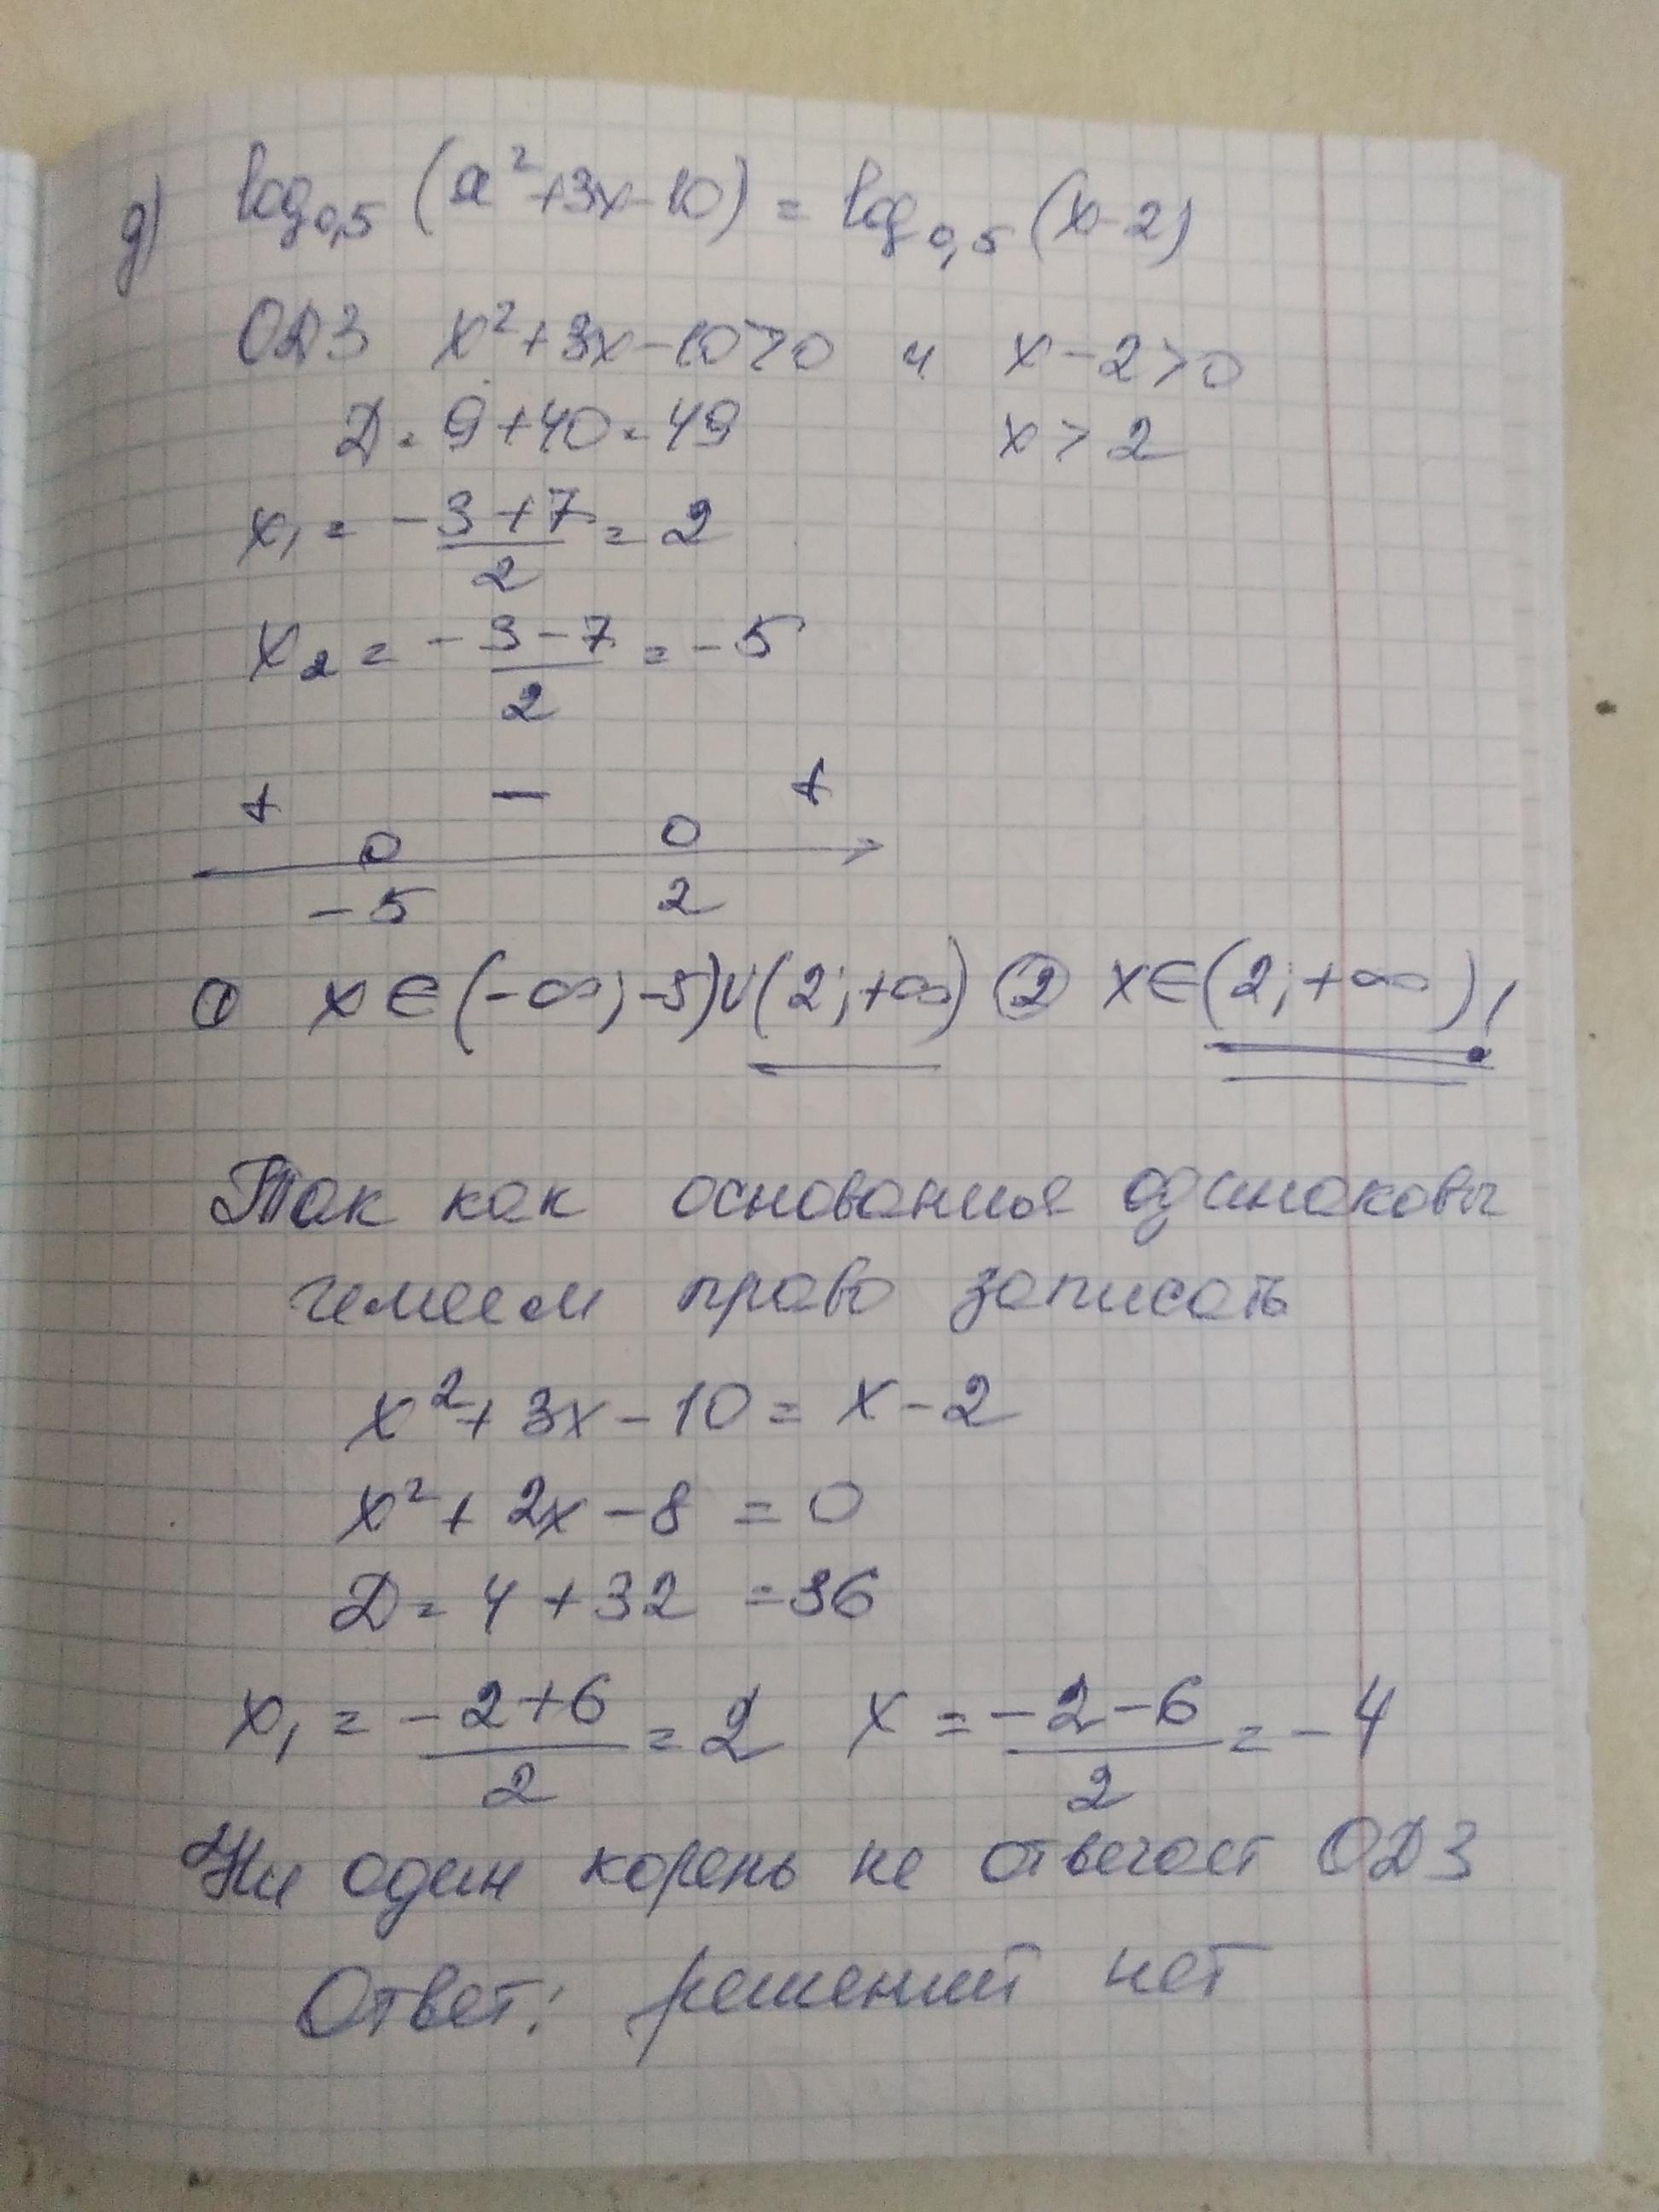 д) log₀,₅ (a²+3x-10) = log₀,₅ (x-2)
ОДЗ x²+3x-10>0 и x-2>0
Д = 9+40=49 x>2
x₁ = -3+7/2 = 2
x₂ = -3-7/2 = -5
+ - +
-5 2
① x∈(-∞;-5)∪(2;+∞) ② x∈(2;+∞)!
Так как основания одинаковы
имеем право записать
x²+3x-10 = x-2
x²+2x-8 = 0
Д = 4+32 = 36
x₁ = -2+6/2 = 2 x = -2-6/2 = -4
Ни один корень не отвечает ОДЗ
Ответ: решений нет